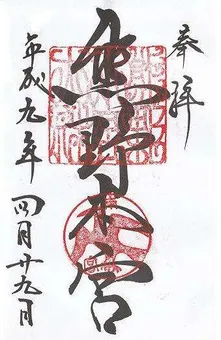 奉拝
熊野本宮
平成九年四月廿九日